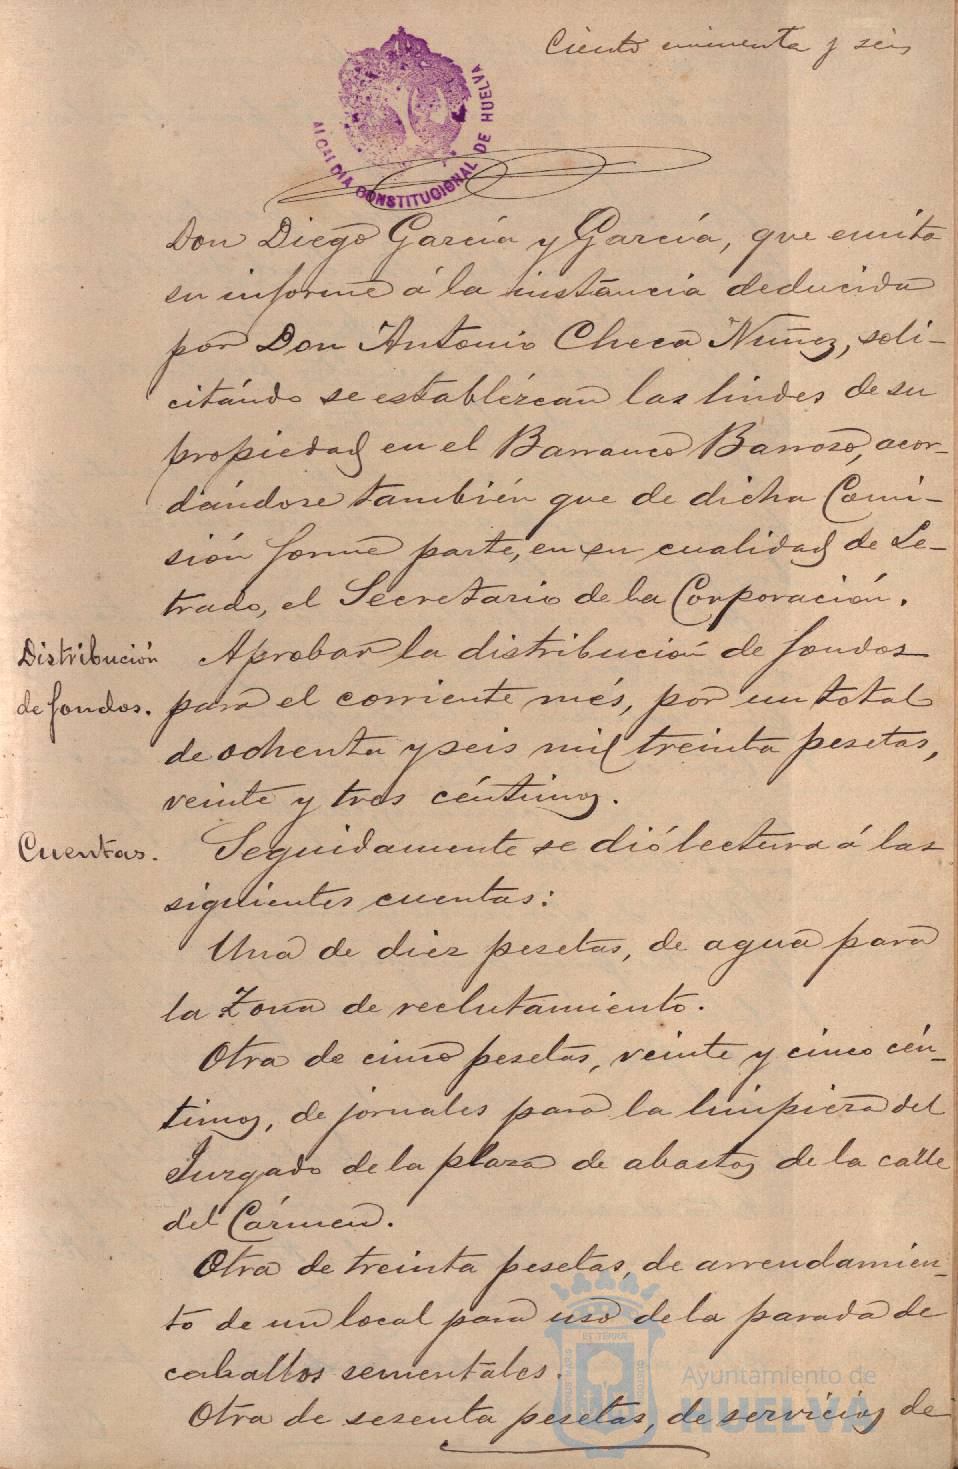 Ciento cincuenta y seis
ALCALDIA CONSTITUCIONAL DE HUELVA
Don Diego García y García, que emita
su informe á la instancia deducida
por Don Antonio Checa Nuñez, soli-
citándo se establézcan las lindes de su
propiedad en el Barranco Barroso, acor-
dándose también que de dicha Comi-
sión forme parte, en su cualidad de Le-
trado, el Secretario de la Corporación.
Distribución de fondos.
Aprobar la distribución de fondos
para el corriente més, por un total
de ochenta y seis mil treinta pesetas,
veinte y tres céntimos.
Cuentas.
Seguidamente se dió lectura á las
siguientes cuentas:
Una de diez pesetas, de agua para
la Zona de reclutamiento.
Otra de cinco pesetas, veinte y cinco cén-
timos, de jornales para la limpieza del
Juzgado de la plaza de abastos de la calle
del Cármen.
Otra de treinta pesetas, de arrendamien-
to de un local para uso de la parada de
caballos sementales.
Otra de sesenta pesetas, de servicios de
Ayuntamiento de
HUELVA